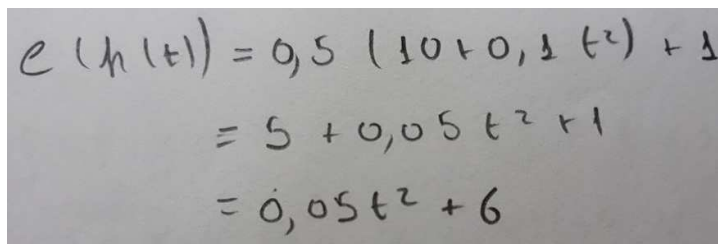 e(h(t)) = 0,5 (10+0,1 t²) + 1
= 5 + 0,05 t² + 1
= 0,05t² + 6